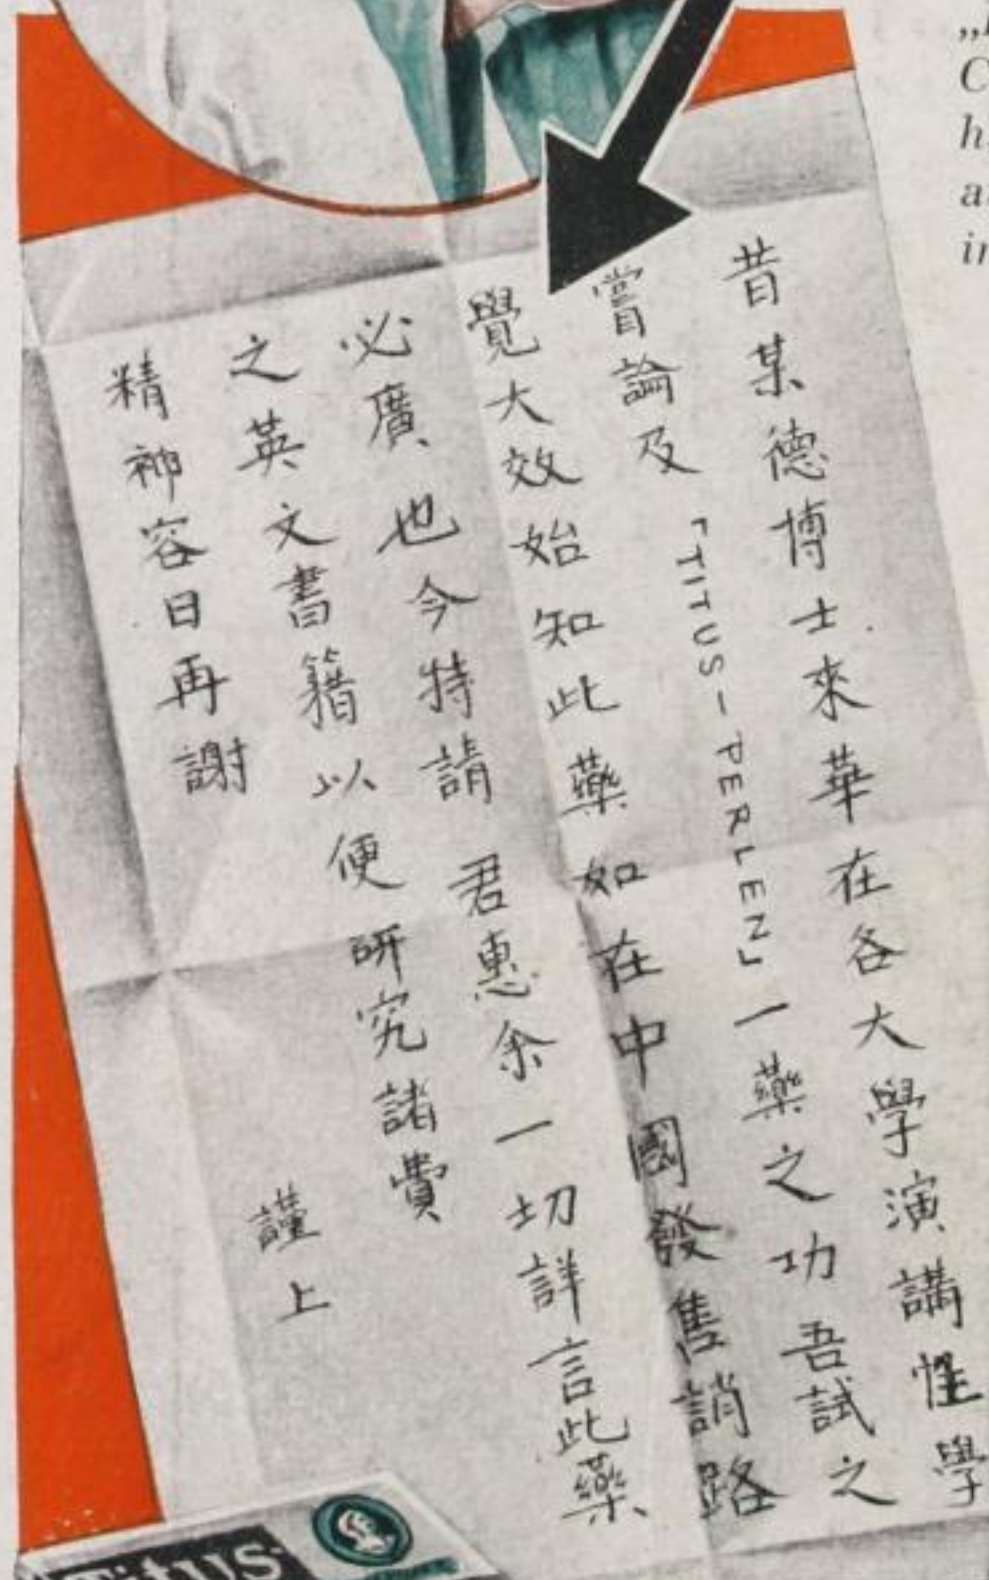 昔某德博士來華在各大學演講性學
嘗論及「TITUS-PERLEN」一藥之功吾試之
覺大效始知此藥如在中國發售誚路
必廣也今特請 君惠余一切詳言此藥
之英文書籍以便研究諸費
精神容日再謝
謹上
Titus